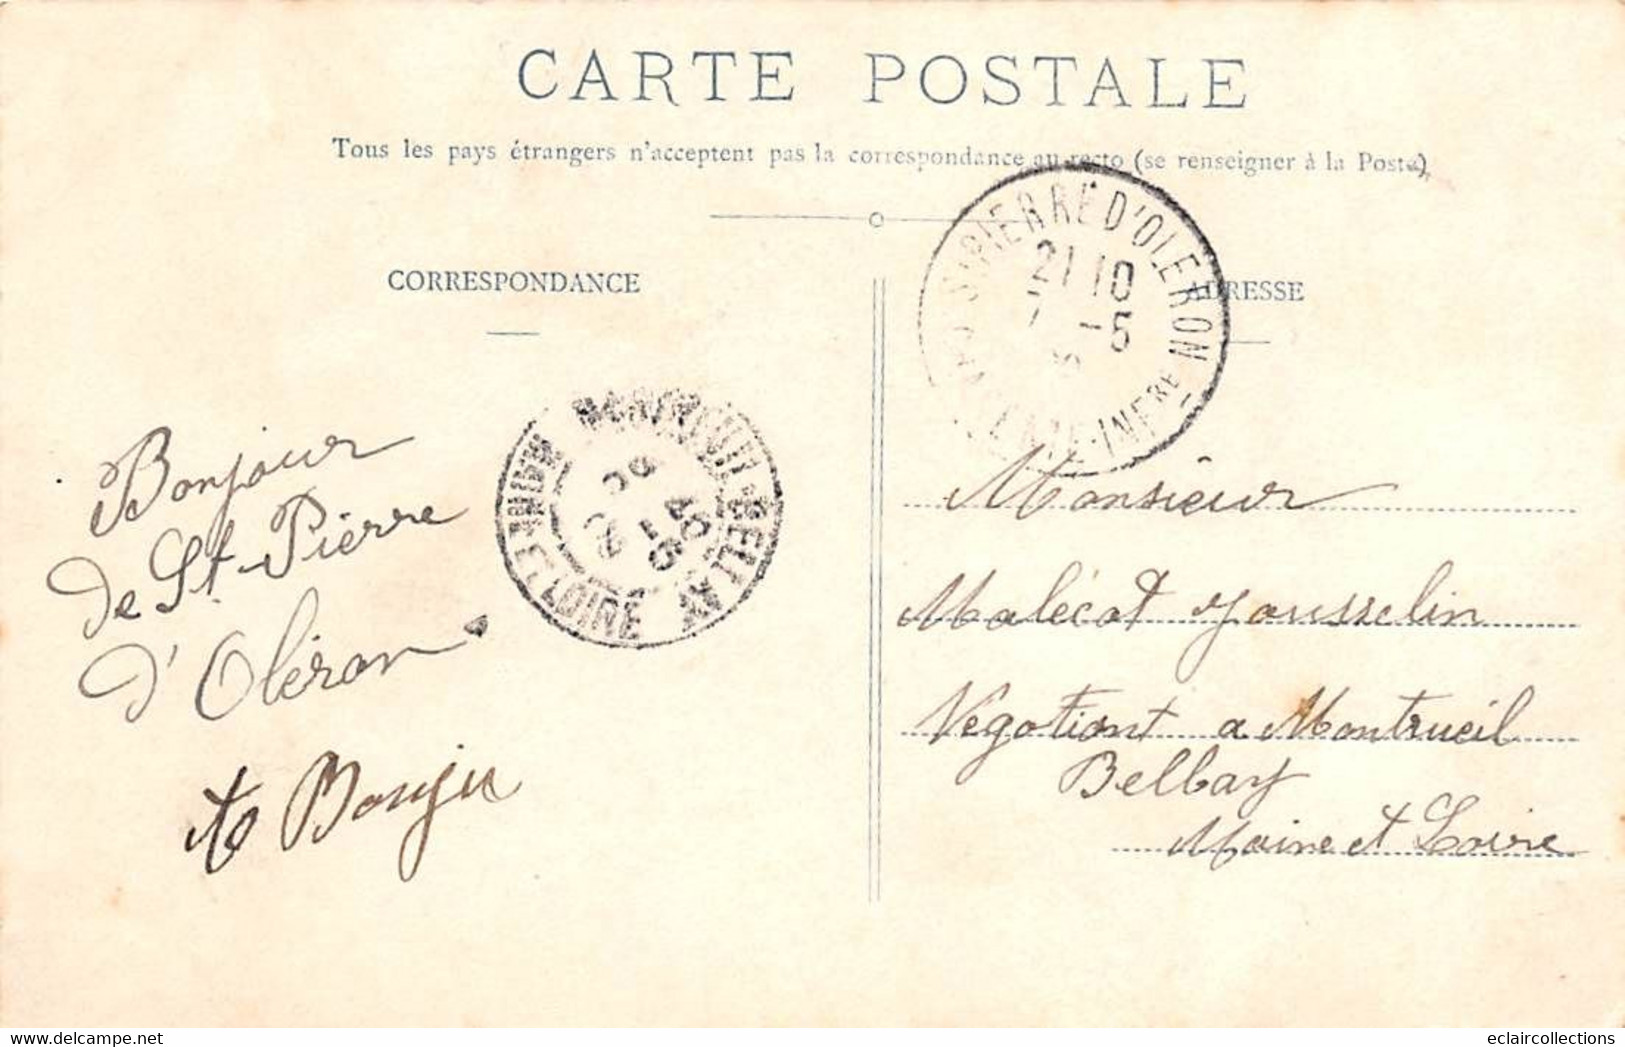 CARTE POSTALE
Tous les pays étrangers n'acceptent pas la correspondance au recto (se renseigner à la Poste)
CORRESPONDANCE
ADRESSE
ST PIERRE D'OLERON
21 10
-5
INFRE
MONTREUIL-BELLAY
MAINE-ET-LOIRE
Bonjour
de St-Pierre
d'Oléron
Monsieur
Malécot Jousselin
Négotiant a Montrueil
Bellay
Maine et Loire
eclaircollections